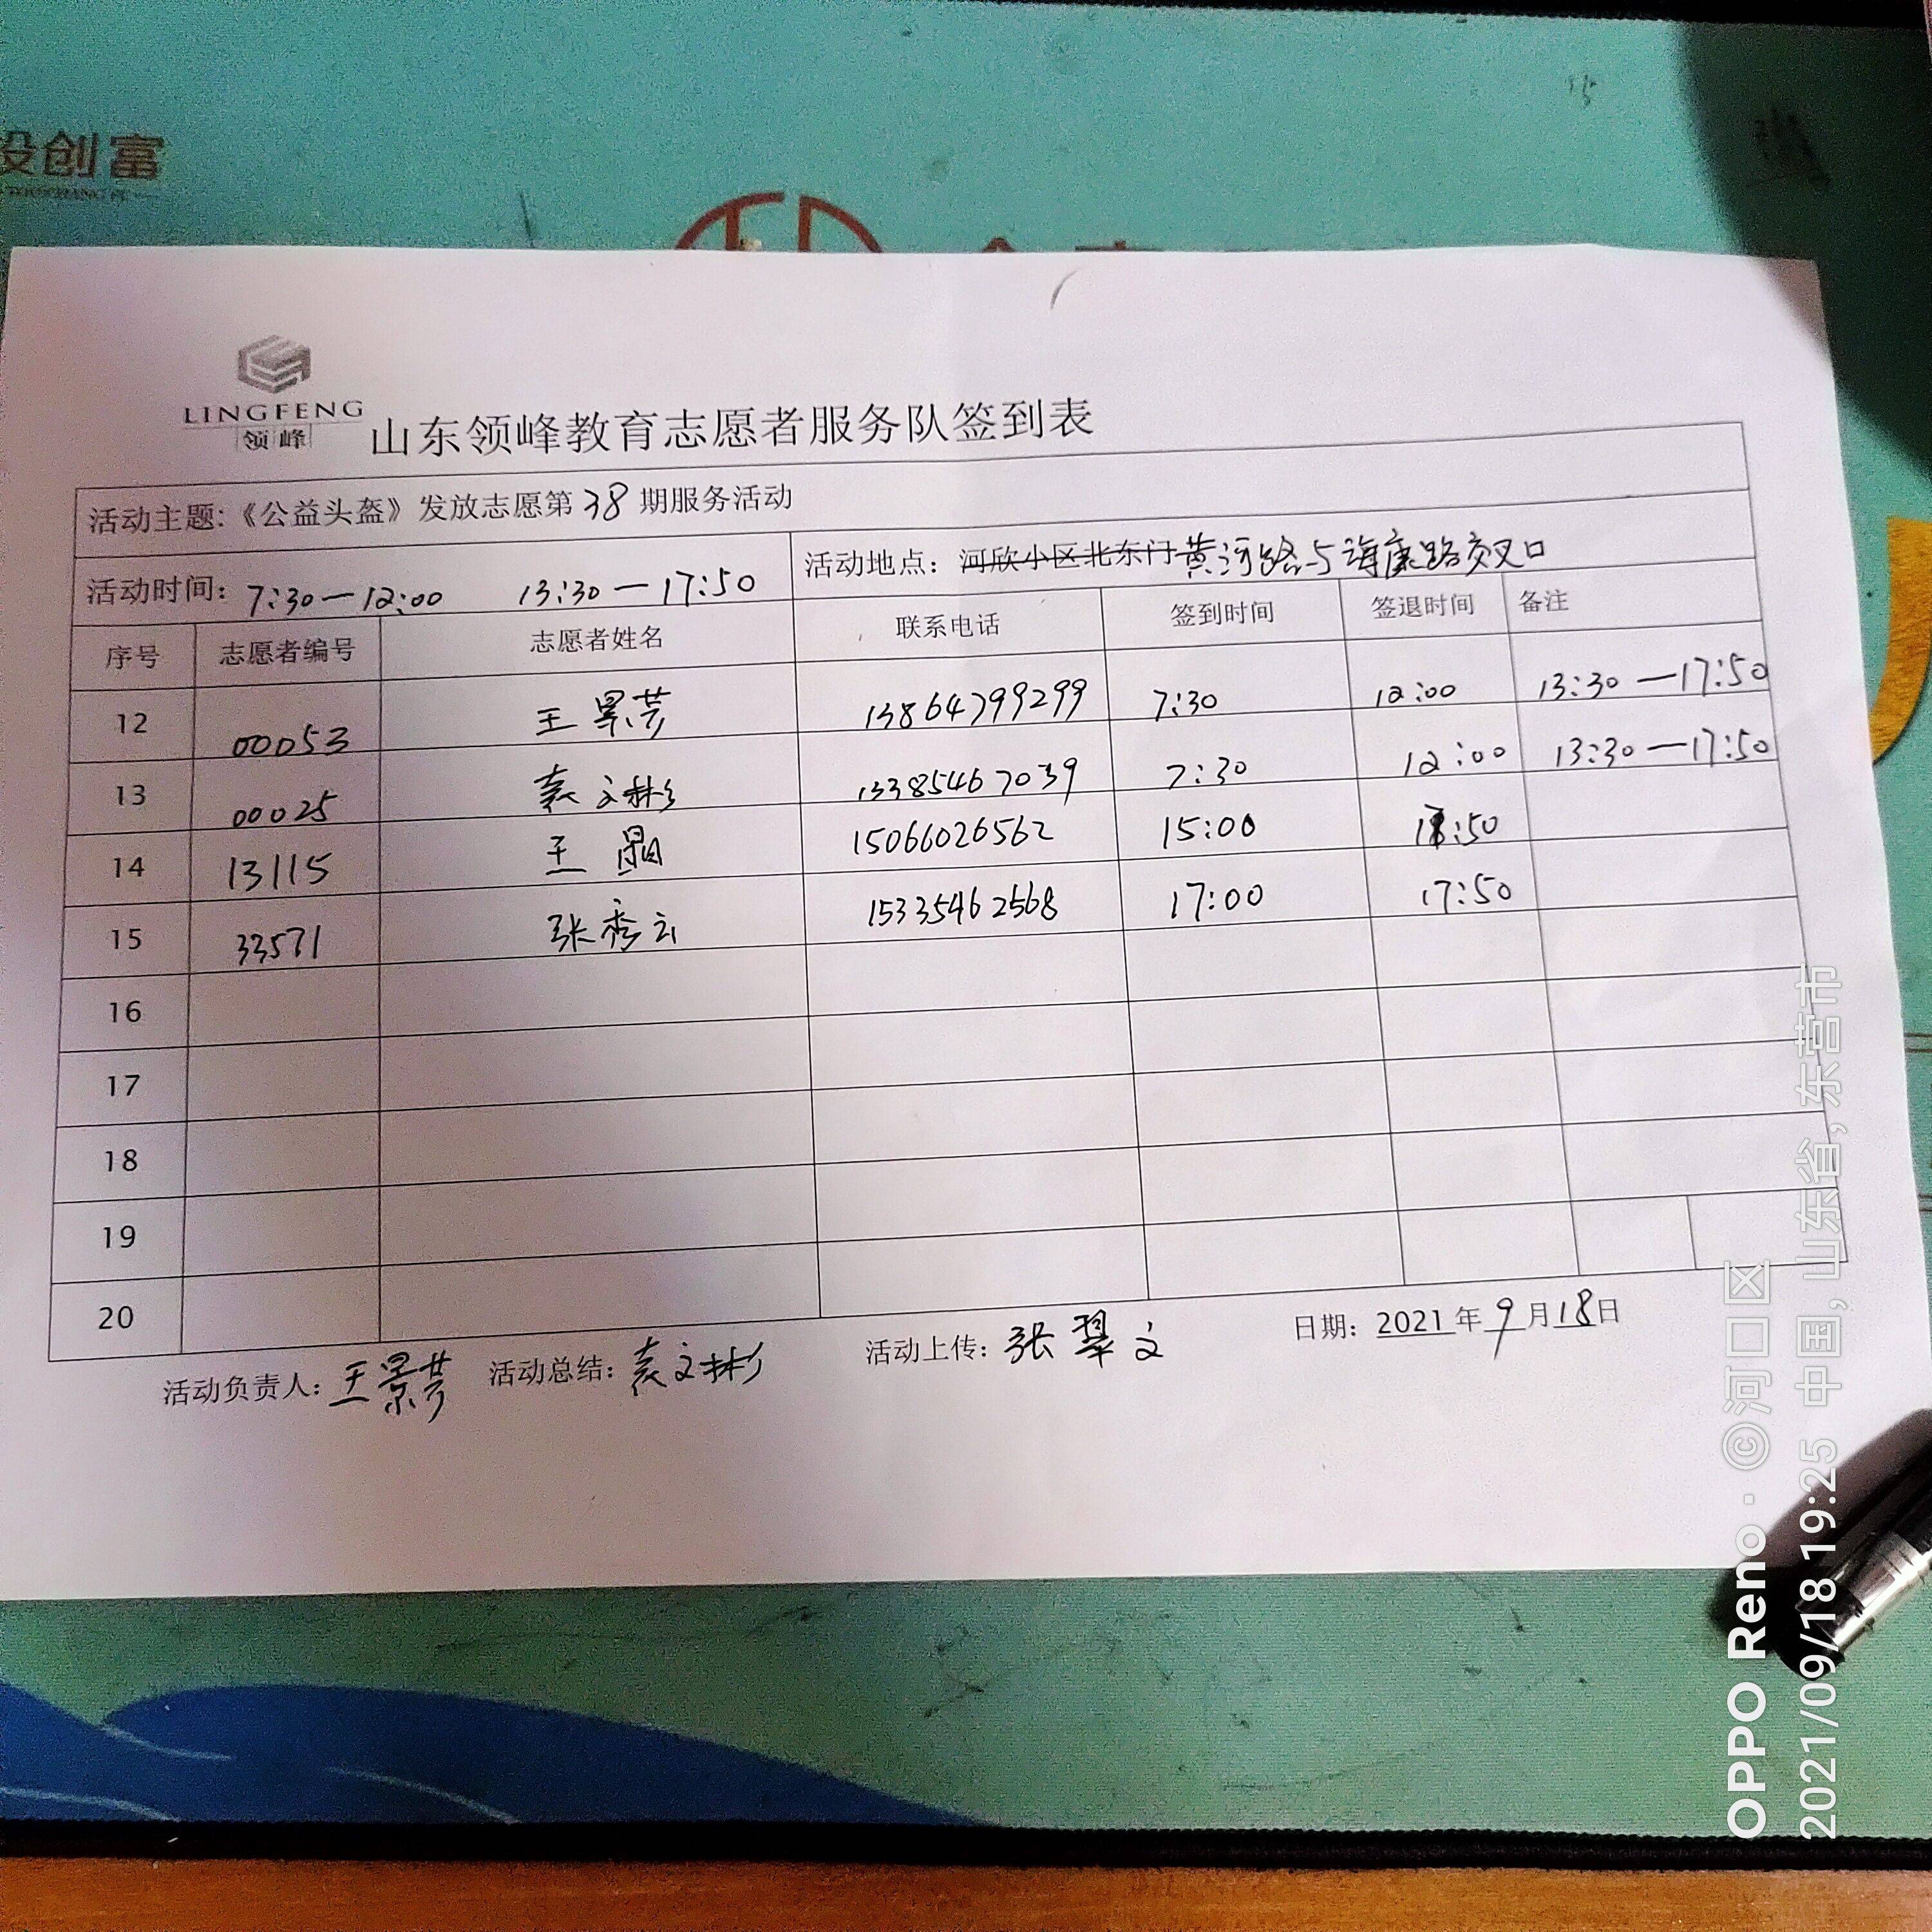 投创富
LINGFENG
领峰
山东领峰教育志愿者服务队签到表
活动主题:《公益头盔》发放志愿第38期服务活动
活动时间: 7:30—12:00 13:30—17:50 活动地点: 河欣小区北东门黄河路与海康路交叉口
序号 志愿者编号 志愿者姓名 联系电话 签到时间 签退时间 备注
12 00053 王景芳 13864799299 7:30 12:00 13:30—17:50
13 00025 袁文彬 13385467039 7:30 12:00 13:30—17:50
14 13115 王晶 15066026562 15:00 :50
15 33571 张秀云 15335462568 17:00 17:50
16
17
18
19
20
活动负责人: 王景芳 活动总结: 袁文彬 活动上传: 张翠文 日期: 2021年9月18日
OPPO Reno · ©河口区
2021/09/18 19:25 中国, 山东省, 东营市